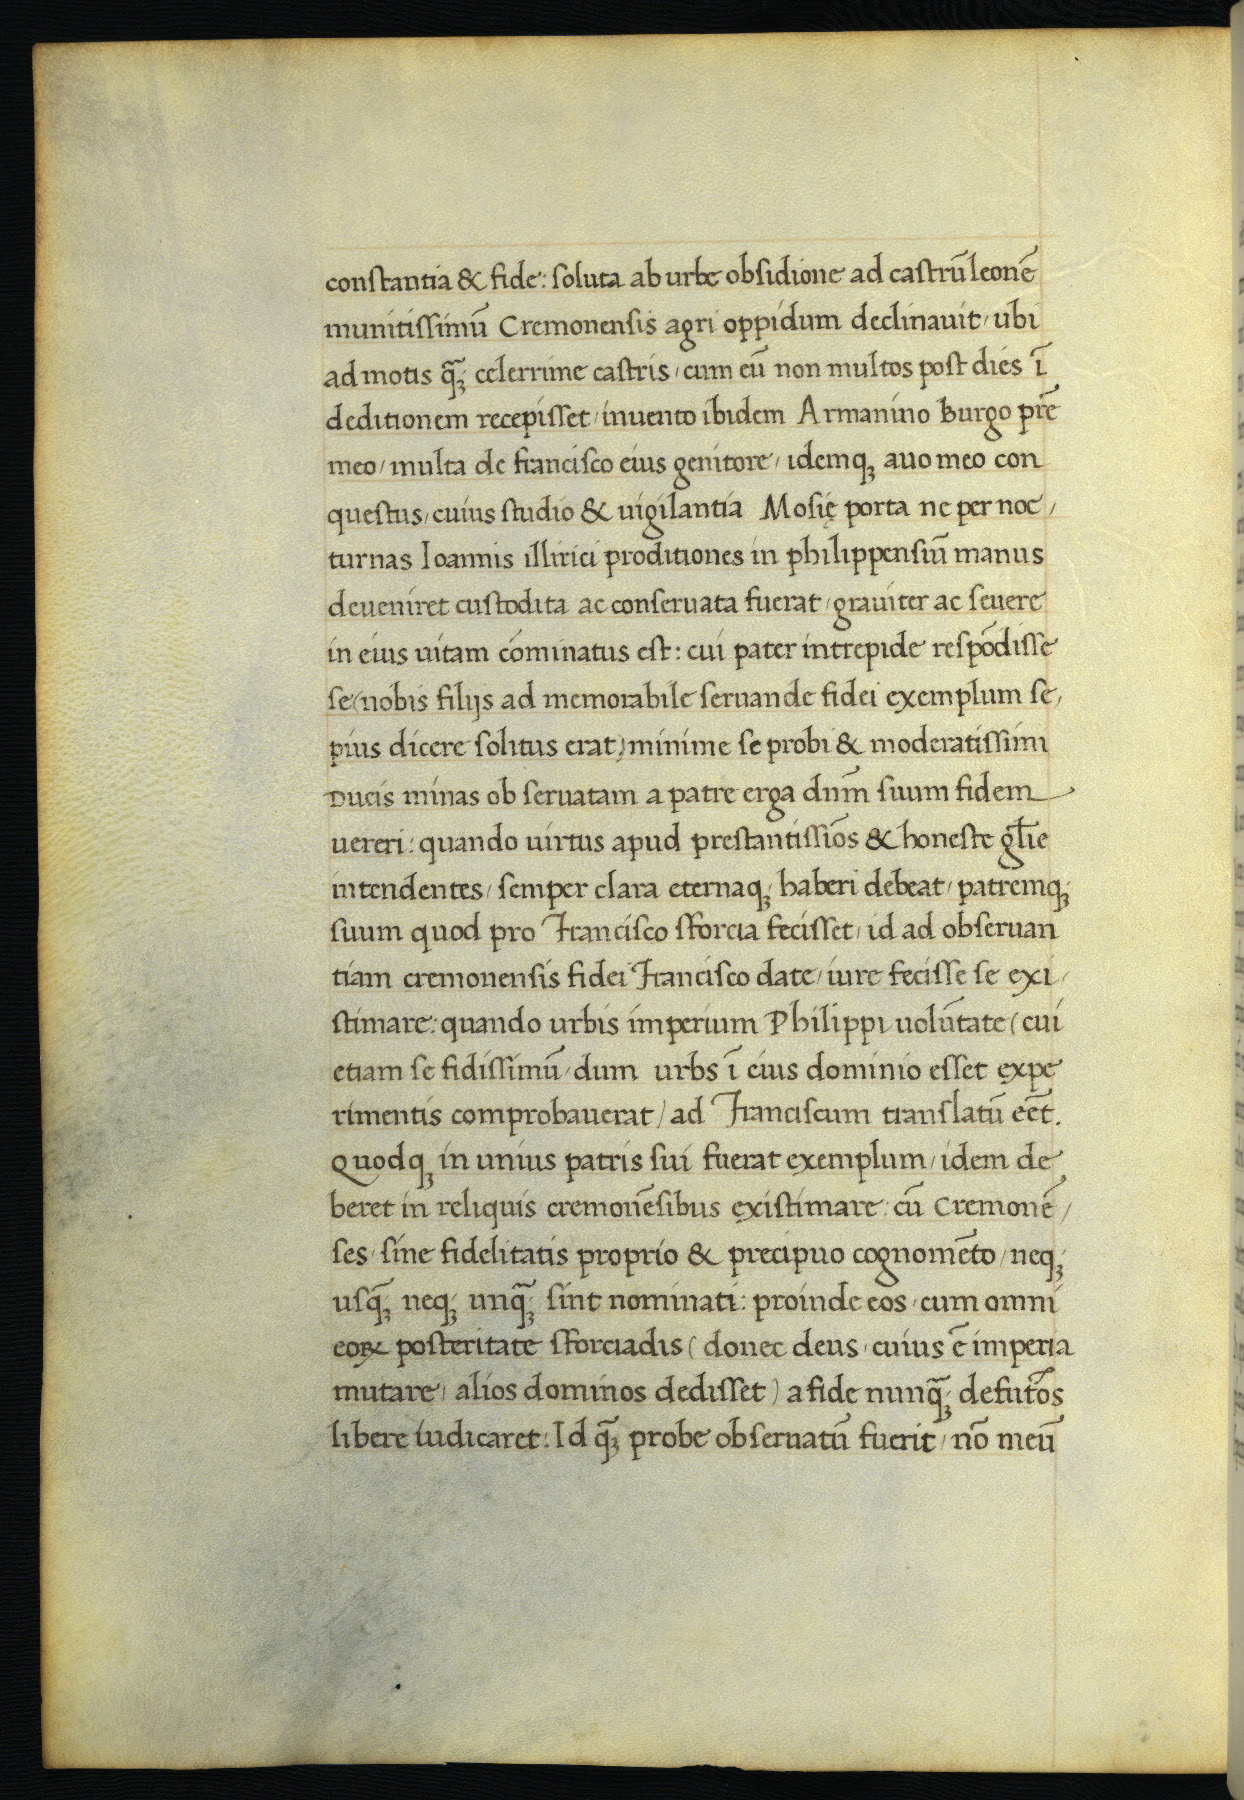 constantia & fide: soluta ab urbe obsidione ad castrū leonē
munitissimū Cremonensis agri oppidum declinauit, ubi
ad motis qꝫ̄ celerrime castris, cum eū non multos post dies ī
deditionem recepisset, inuento ibidem Armanino Burgo prē
meo, multa de francisco eius genitore, idemqꝫ auo meo con
questus, cuius studio & uigilantia Mosię porta ne per noc,
turnas Ioannis illirici proditiones in philippensiū manus
deueniret custodita ac conseruata fuerat, grauiter ac seuere
in eius uitam cōminatus est: cui pater intrepide respōdisse
se (nobis filijs ad memorabile seruande fidei exemplum se,
pius dicere solitus erat) minime se probi & moderatissimi
Ducis minas ob seruatam a patre erga dnm̄ suum fidem
uereri: quando uirtus apud prestantissiōs & honeste gl̄ie
intendentes, semper clara eternaqꝫ haberi debeat, patremqꝫ
suum quod pro Francisco sforcia fecisset, id ad obseruan
tiam cremonensis fidei Francisco date, iure fecisse se exi,
stimare: quando urbis imperium Philippi uolūtate (cui
etiam se fidissimū, dum urbs ī eius dominio esset expe
rimentis comprobauerat) ad Franciscum translatū eēt.
Quodqꝫ in unius patris sui fuerat exemplum, idem de
beret in reliquis cremonēsibus existimare: cū Cremonē,
ses, sine fidelitatis proprio & precipuo cognomēto, neqꝫ
usqꝫ̄ neqꝫ unqꝫ̄ sint nominati: proinde eos, cum omni
eoꝝ posteritate sforciadis (donec deus, cuius ē imperia
mutare, alios dominos dedisset) a fide nunqꝫ̄ defutōs
libere iudicaret: Id qꝫ̄ probe obseruatū fuerit, nō meū